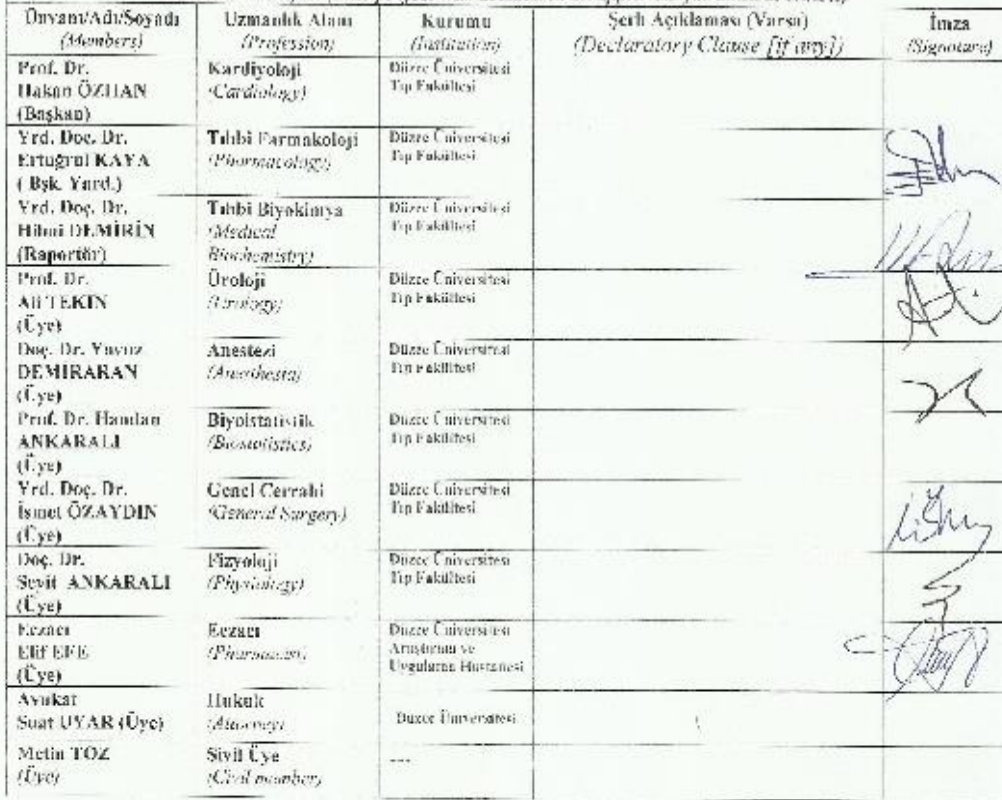 Ünvanı/Adı/Soyadı
(Members)
Uzmanlık Alanı
(Profession)
Kurumu
(Institution)
Şerh Açıklaması (Varsa)
(Declaratory Clause [if any])
İmza
(Signature)
Prof. Dr.
Hakan ÖZHAN
(Başkan)
Kardiyoloji
(Cardiology)
Düzce Üniversitesi
Tıp Fakültesi
Yrd. Doç. Dr.
Ertuğrul KAYA
( Bşk. Yard.)
Tıbbi Farmakoloji
(Pharmacology)
Düzce Üniversitesi
Tıp Fakültesi
Yrd. Doç. Dr.
Hilmi DEMİRİN
(Raportör)
Tıbbi Biyokimya
(Medical
Biochemistry)
Düzce Üniversitesi
Tıp Fakültesi
Prof. Dr.
Ali TEKİN
(Üye)
Üroloji
(Urology)
Düzce Üniversitesi
Tıp Fakültesi
Doç. Dr. Yavuz
DEMİRARAN
(Üye)
Anestezi
(Anesthesia)
Düzce Üniversitesi
Tıp Fakültesi
Prof. Dr. Handan
ANKARALI
(Üye)
Biyoistatistik
(Biostatistics)
Düzce Üniversitesi
Tıp Fakültesi
Yrd. Doç. Dr.
İsmet ÖZAYDIN
(Üye)
Genel Cerrahi
(General Surgery)
Düzce Üniversitesi
Tıp Fakültesi
Doç. Dr.
Seyit ANKARALI
(Üye)
Fizyoloji
(Physiology)
Düzce Üniversitesi
Tıp Fakültesi
Eczacı
Elif EFE
(Üye)
Eczacı
(Pharmacist)
Düzce Üniversitesi
Araştırma ve
Uygulama Hastanesi
Avukat
Suat UYAR (Üye)
Hukuk
(Attorney)
Düzce Üniversitesi
Metin TOZ
(Üye)
Sivil Üye
(Civil member)
---